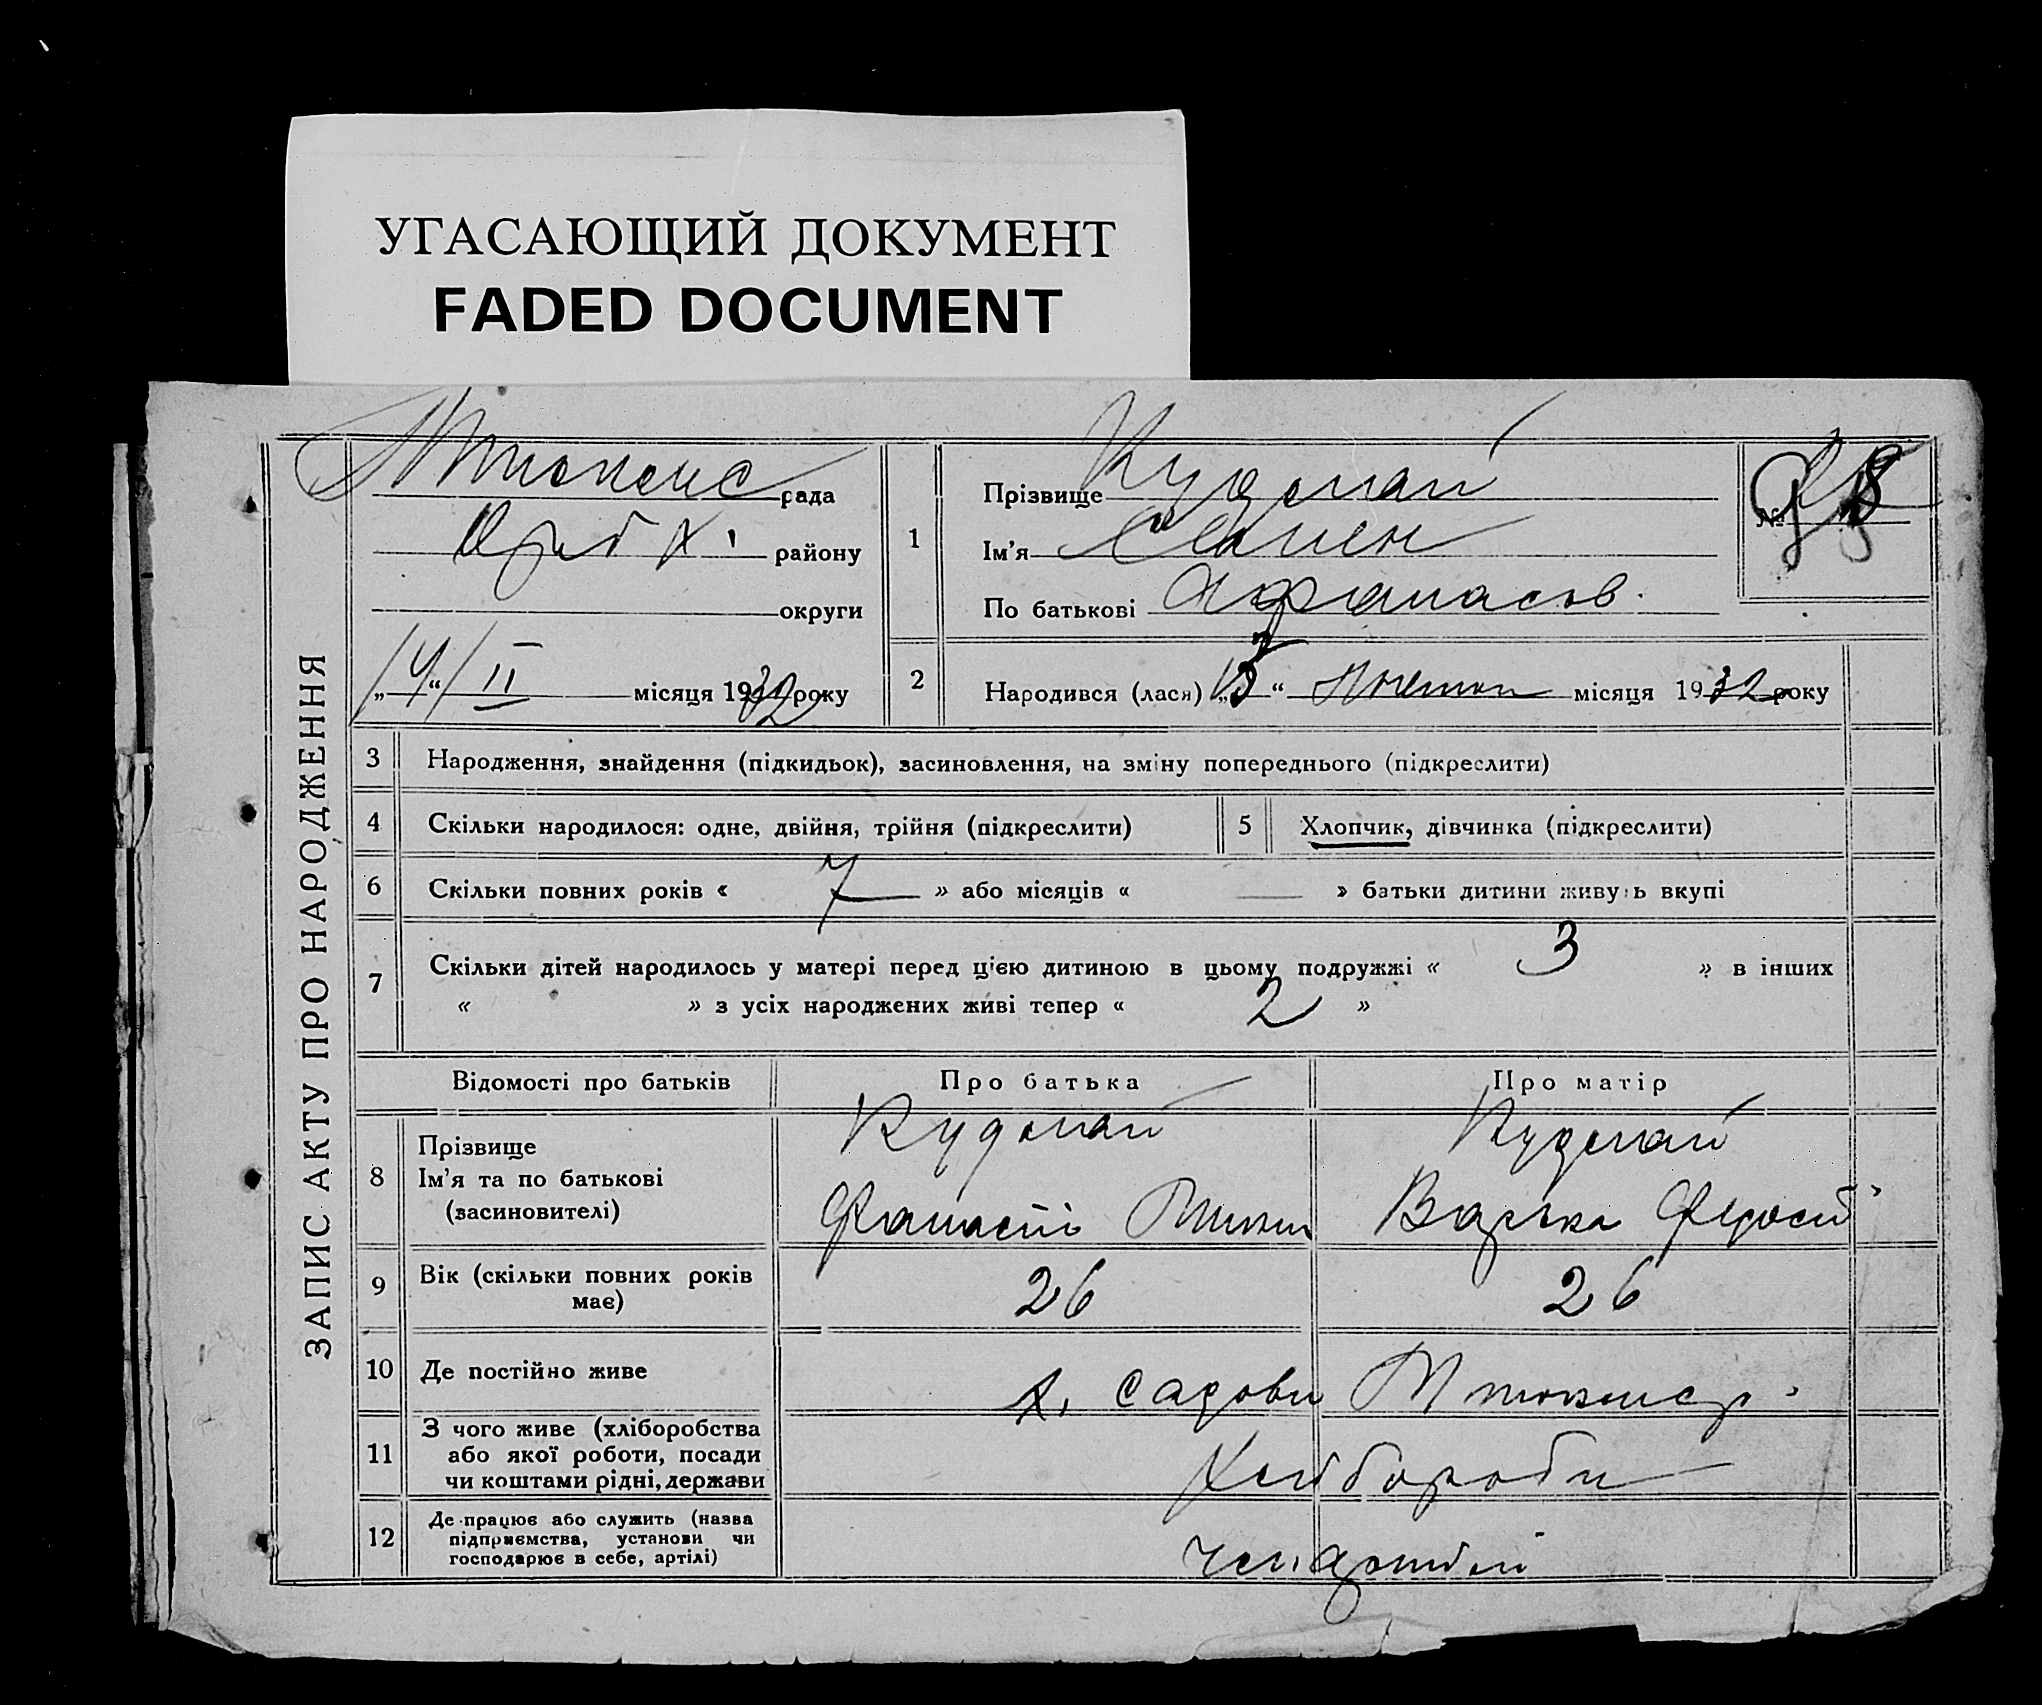 УГАСАЮЩИЙ ДОКУМЕНТ
FADED DOCUMENT
ЗАПИС АКТУ ПРО НАРОДЖЕННЯ
рада
району
округи
„14“ II місяця 1932 року
1
Прізвище
Ім'я Семен
По батькові Афанасов.
№
2
Народився (лася) „ “ Лютого місяця 1932 року
3 Народження, знайдення (підкидьок), засиновлення, на зміну попереднього (підкреслити)
4 Скільки народилося: одне, двійня, трійня (підкреслити)
5 Хлопчик, дівчинка (підкреслити)
6 Скільки повних років « 7 » або місяців « — » батьки дитини живуть вкупі
7 Скільки дітей народилось у матері перед цією дитиною в цьому подружжі « 3 » в інших
« » з усіх народжених живі тепер « 2 »
Відомості про батьків
Про батька
Про матір
8 Прізвище
Ім'я та по батькові
(засиновителі)
Варька
9 Вік (скільки повних років
має)
26
26
10 Де постійно живе
х. Садови
11 З чого живе (хліборобства
або якої роботи, посади
чи коштами рідні, держави
12 Де працює або служить (назва
підприємства, установи чи
господарює в себе, артілі)